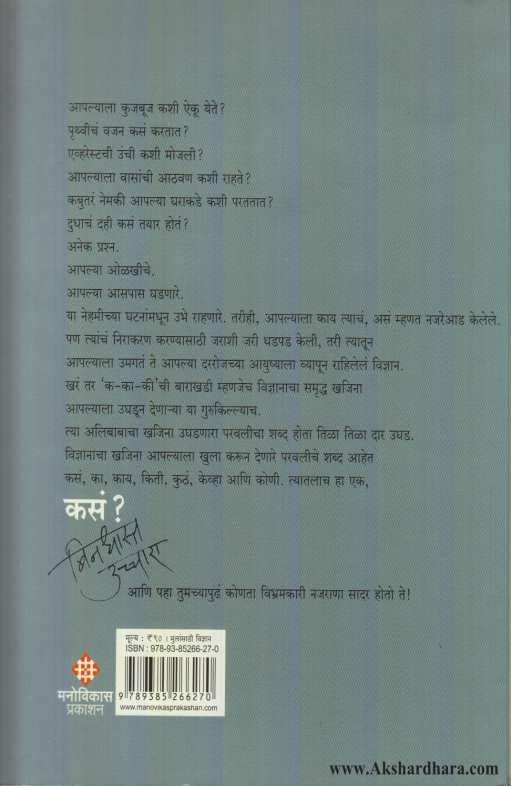 आपल्याला कुजबूज कशी ऐकू येते?
पृथ्वीचं वजन कसं करतात?
एव्हरेस्टची उंची कशी मोजली?
आपल्याला वासांची आठवण कशी राहते?
कबुतरं नेमकी आपल्या घराकडे कशी परततात?
दुधाचं दही कसं तयार होतं?
अनेक प्रश्न.
आपल्या ओळखीचे.
आपल्या आसपास घडणारे.
या नेहमीच्या घटनांमधून उभे राहणारे. तरीही, आपल्याला काय त्याचं, असं म्हणत नजरेआड केलेले.
पण त्यांचं निराकरण करण्यासाठी जराशी जरी धडपड केली, तरी त्यातून
आपल्याला उमगतं ते आपल्या दररोजच्या आयुष्याला व्यापून राहिलेलं विज्ञान.
खरं तर 'क-का-की'ची बाराखडी म्हणजेच विज्ञानाचा समृद्ध खजिना
आपल्याला उघडून देणाऱ्या या गुरुकिल्ल्याच.
त्या अलिबाबाचा खजिना उघडणारा परवलीचा शब्द होता तिळा तिळा दार उघड.
विज्ञानाचा खजिना आपल्याला खुला करून देणारे परवलीचे शब्द आहेत
कसं, का, काय, किती, कुठं, केव्हा आणि कोणी. त्यातलाच हा एक,
कसं?
बिनधास्त
उच्चारा
आणि पहा तुमच्यापुढं कोणता विभ्रमकारी नजराणा सादर होतो ते!
मूल्य : ₹९० । मुलांसाठी विज्ञान
ISBN : 978-93-85266-27-0
9 789385 266270
www.manovikasprakashan.com
मनोविकास
प्रकाशन
www.Akshardhara.com